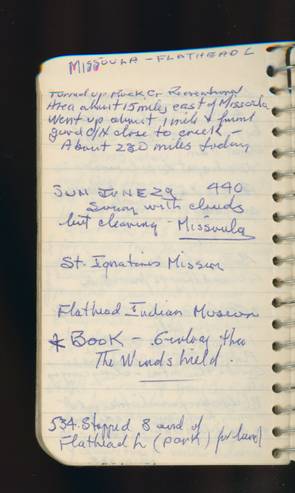 MISSOULA - FLATHEAD L
Turned up Rock Cr Recreational
Area about 15 miles east of Missoula
Went up about 1 mile & found
good O/N close to creek -
About 230 miles today
SUN JUNE 29 440
Sunny with clouds
but clearing - Missoula
St. Ignatius Mission
Flathead Indian Museum
* BOOK - Geology thru
The Windshield.
534. Stopped S end of
Flathead L (park) for lunch